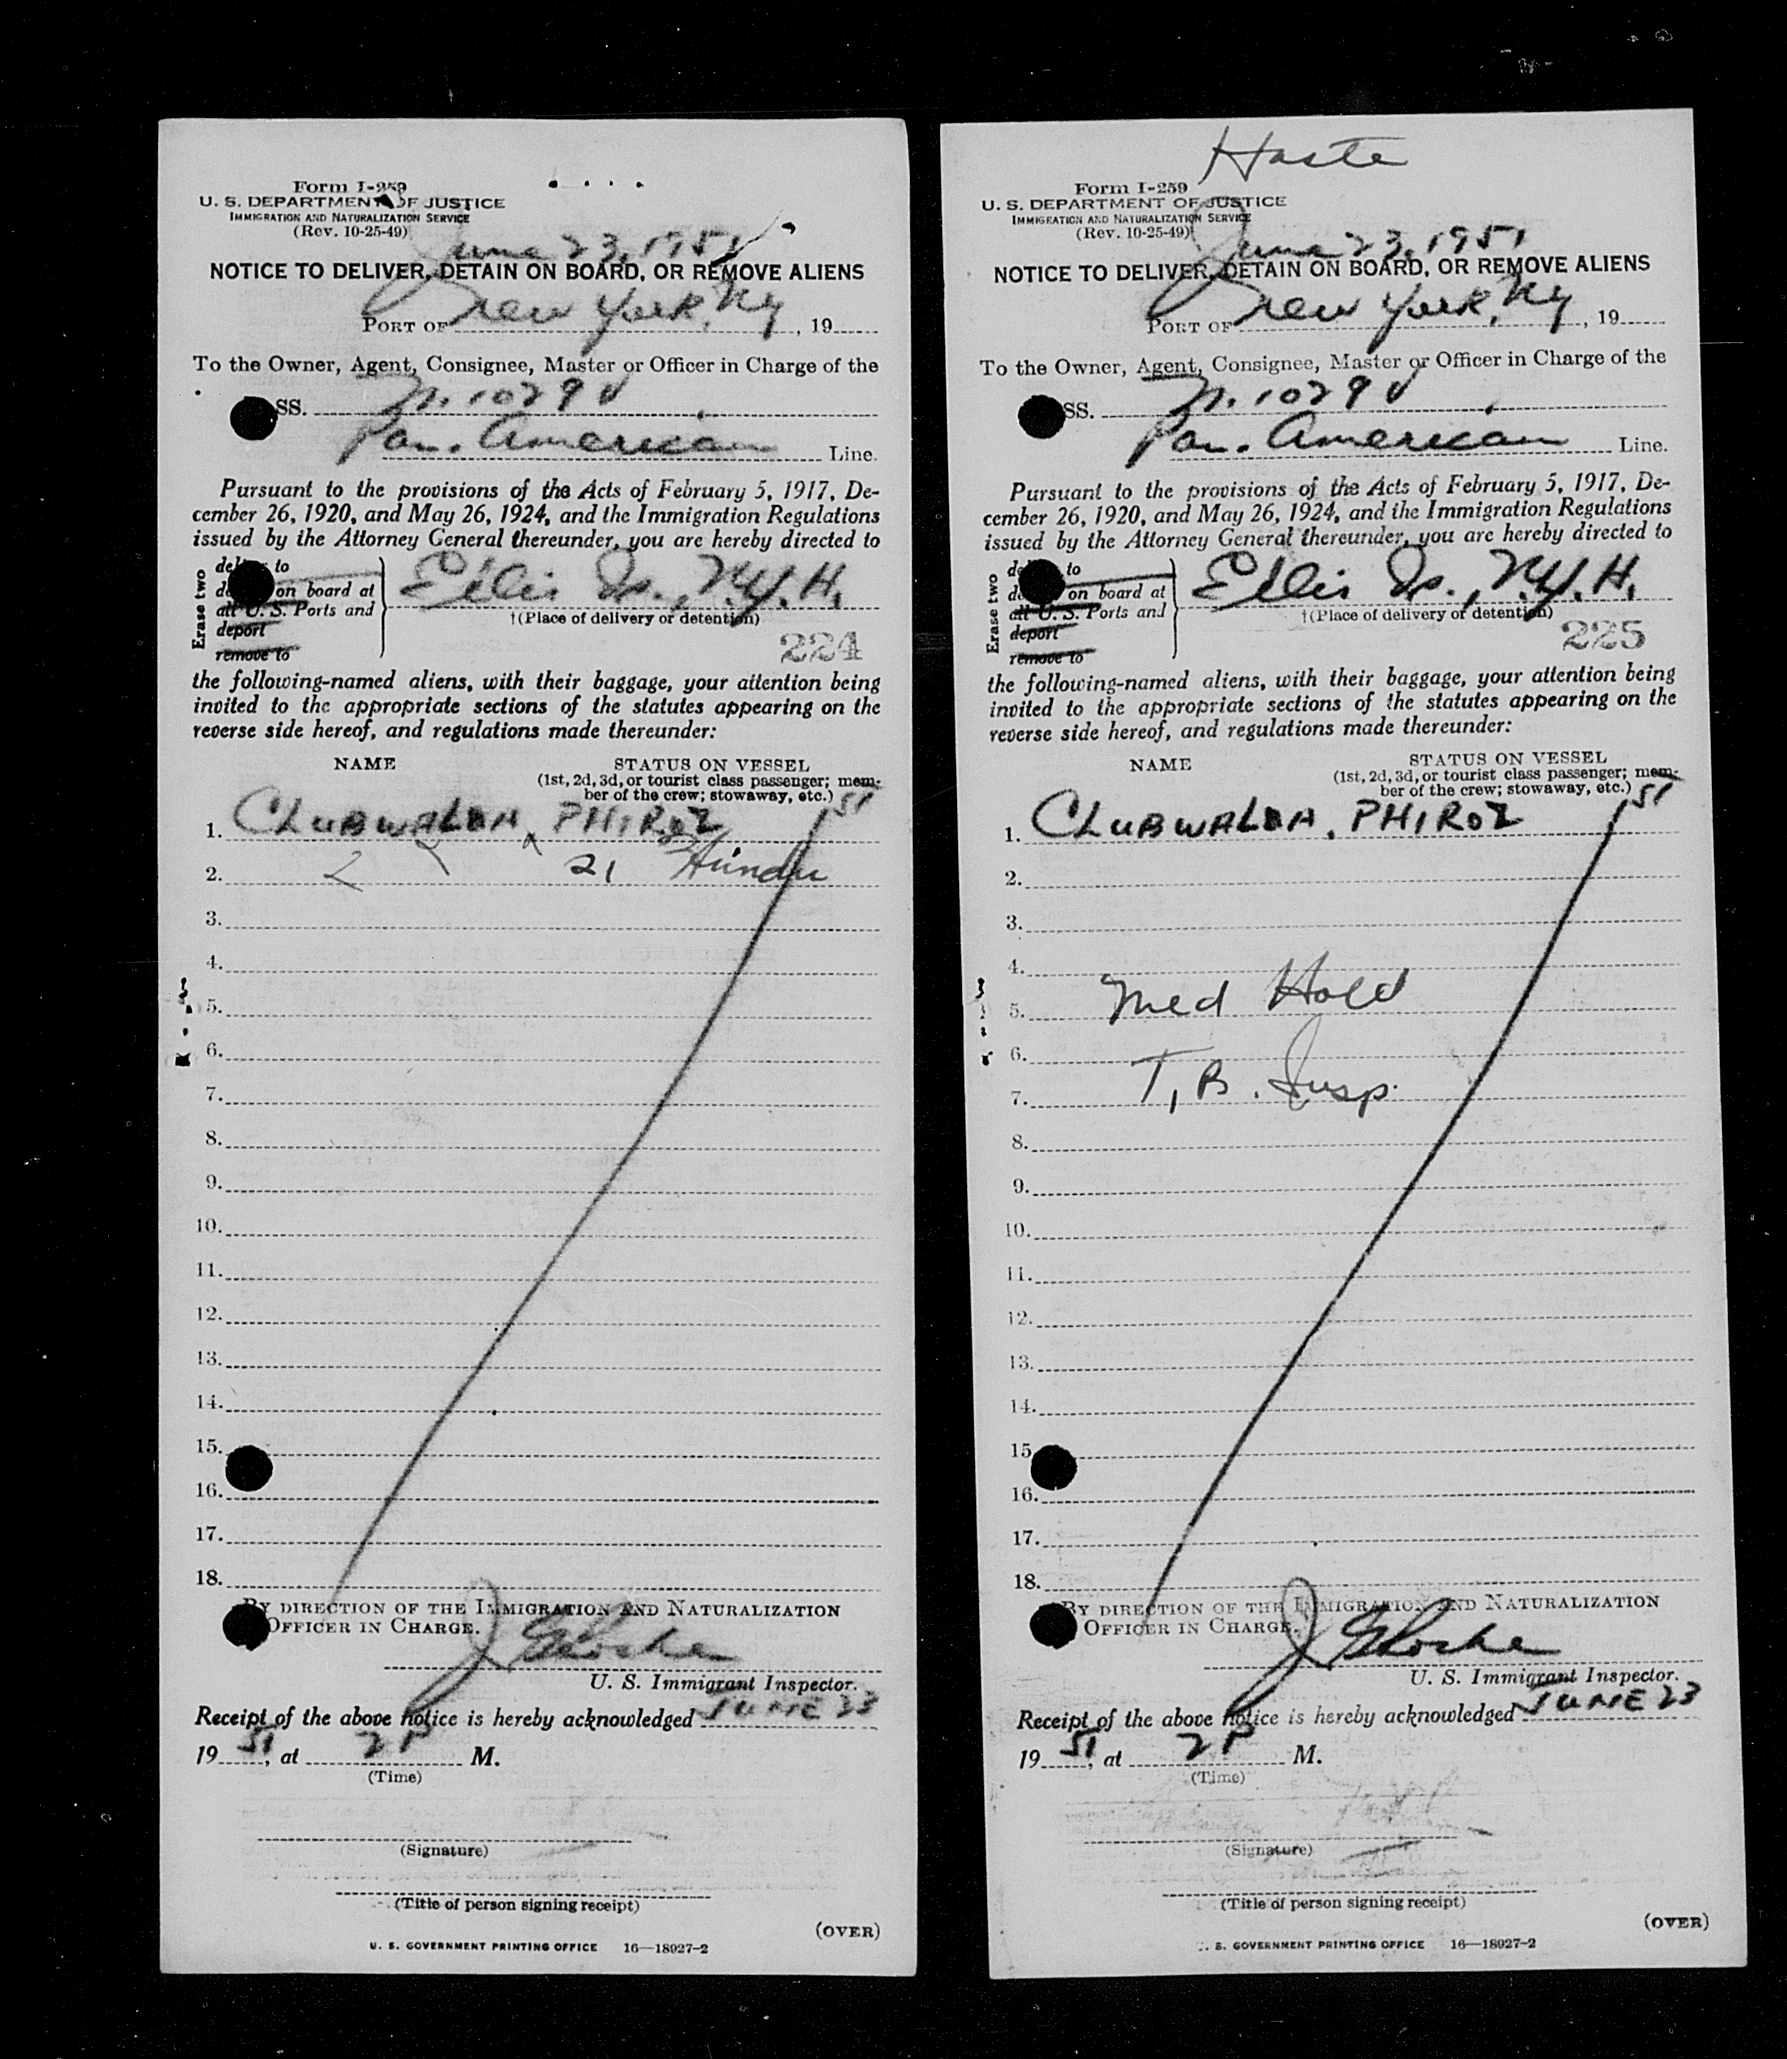 Form I-259
U. S. DEPARTMENT OF JUSTICE
IMMIGRATION AND NATURALIZATION SERVICE
(Rev. 10-25-49)
June 23, 1951
NOTICE TO DELIVER, DETAIN ON BOARD, OR REMOVE ALIENS
PORT OF New York, NY, 19
To the Owner, Agent, Consignee, Master or Officer in Charge of the
SS. N. 1029 V
Pan. American Line.
Pursuant to the provisions of the Acts of February 5, 1917, De-
cember 26, 1920, and May 26, 1924, and the Immigration Regulations
issued by the Attorney General thereunder, you are hereby directed to
Erase two
to
on board at
all U. S. Ports and
deport
remove to
Ellis Is., N.Y.H.
†(Place of delivery or detention)
224
the following-named aliens, with their baggage, your attention being
invited to the appropriate sections of the statutes appearing on the
reverse side hereof, and regulations made thereunder:
NAME STATUS ON VESSEL
(1st, 2d, 3d, or tourist class passenger; mem-
ber of the crew; stowaway, etc.) 51
1. CLUBWALDA, PHIROZ
2. 21 Hindu
3.
4.
5.
6.
7.
8.
9.
10.
11.
12.
13.
14.
15.
16.
17.
18.
BY DIRECTION OF THE IMMIGRATION AND NATURALIZATION
OFFICER IN CHARGE.
U. S. Immigrant Inspector.
Receipt of the above notice is hereby acknowledged JUNE 23
19 51, at 2 P M.
(Time)
(Signature)
(Title of person signing receipt)
(OVER)
U. S. GOVERNMENT PRINTING OFFICE 16—18927-2
Haste
Form I-259
U. S. DEPARTMENT OF JUSTICE
IMMIGRATION AND NATURALIZATION SERVICE
(Rev. 10-25-49)
June 23, 1951
NOTICE TO DELIVER, DETAIN ON BOARD, OR REMOVE ALIENS
PORT OF New York, NY, 19
To the Owner, Agent, Consignee, Master or Officer in Charge of the
SS. N. 1029 V
Pan. American Line.
Pursuant to the provisions of the Acts of February 5, 1917, De-
cember 26, 1920, and May 26, 1924, and the Immigration Regulations
issued by the Attorney General thereunder, you are hereby directed to
Erase two
to
on board at
all U. S. Ports and
deport
remove to
Ellis Is., N.Y.H.
†(Place of delivery or detention)
225
the following-named aliens, with their baggage, your attention being
invited to the appropriate sections of the statutes appearing on the
reverse side hereof, and regulations made thereunder:
NAME STATUS ON VESSEL
(1st, 2d, 3d, or tourist class passenger; mem-
ber of the crew; stowaway, etc.) 51
1. CLUBWALDA, PHIROZ
2.
3.
4.
5. Med Hold
6.
7. T.B. Susp.
8.
9.
10.
11.
12.
13.
14.
15.
16.
17.
18.
BY DIRECTION OF THE IMMIGRATION AND NATURALIZATION
OFFICER IN CHARGE.
U. S. Immigrant Inspector.
Receipt of the above notice is hereby acknowledged JUNE 23
19 51, at 2 P M.
(Time)
(Signature)
(Title of person signing receipt)
(OVER)
S. GOVERNMENT PRINTING OFFICE 16—18927-2